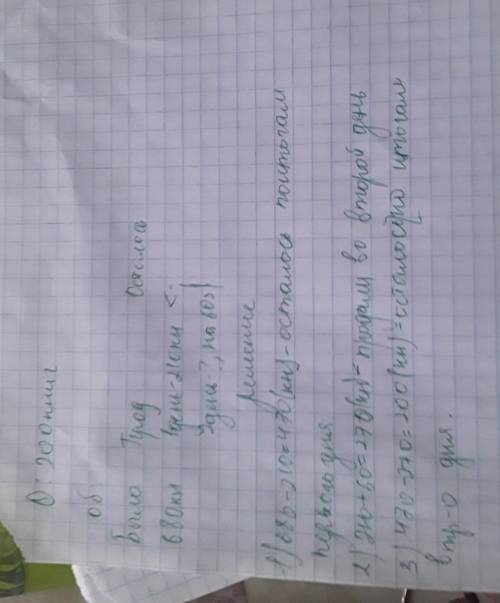 О: 200 книг
об
Было Прод Осталось
680кн 1день-210кн <
2день-?, на 60>
решение
1) 680-210=470(кн)-осталось поитогам
первого дня
2) 210+60=270(кн)-продали во второй день
3) 470-270=200(кн)-осталось по итогам
втр-о дня.